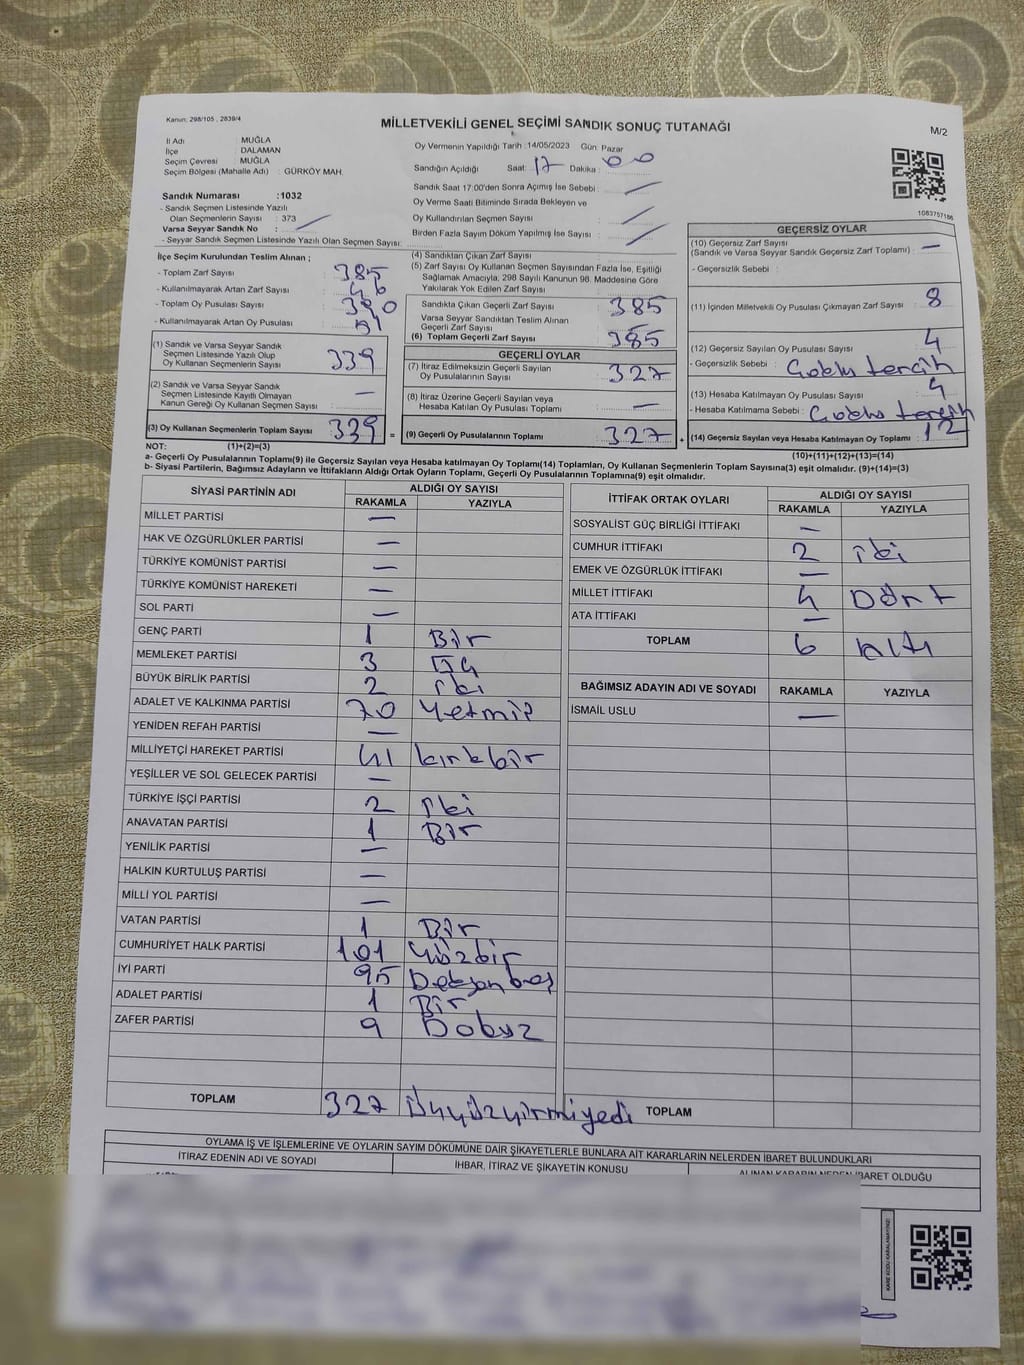 Kanun: 298/105 , 2839/4
MİLLETVEKİLİ GENEL SEÇİMİ SANDIK SONUÇ TUTANAĞI
M/2
İl Adı MUĞLA
İlçe DALAMAN
Seçim Çevresi MUĞLA
Seçim Bölgesi (Mahalle Adı) : GÜRKÖY MAH.
Sandık Numarası :1032
- Sandık Seçmen Listesinde Yazılı
Olan Seçmenlerin Sayısı : 373
Varsa Seyyar Sandık No :
- Seyyar Sandık Seçmen Listesinde Yazılı Olan Seçmen Sayısı:
Oy Vermenin Yapıldığı Tarih :14/05/2023 Gün: Pazar
Sandığın Açıldığı Saat: 17 Dakika : 00
Sandık Saat 17:00'den Sonra Açımış İse Sebebi :
Oy Verme Saati Bitiminde Sırada Bekleyen ve
Oy Kullandırılan Seçmen Sayısı :
Birden Fazla Sayım Döküm Yapılmış İse Sayısı :
1083757186
İlçe Seçim Kurulundan Teslim Alınan ;
- Toplam Zarf Sayısı : 385
- Kullanılmayarak Artan Zarf Sayısı : 46
- Toplam Oy Pusulası Sayısı : 390
- Kullanılmayarak Artan Oy Pusulası :
(1) Sandık ve Varsa Seyyar Sandık
Seçmen Listesinde Yazılı Olup
Oy Kullanan Seçmenlerin Sayısı : 339
(2) Sandık ve Varsa Seyyar Sandık
Seçmen Listesinde Kayıtlı Olmayan
Kanun Gereği Oy Kullanan Seçmen Sayısı : —
(3) Oy Kullanan Seçmenlerin Toplam Sayısı : 339 =
(4) Sandıktan Çıkan Zarf Sayısı :
(5) Zarf Sayısı Oy Kullanan Seçmen Sayısından Fazla İse, Eşitliği
Sağlamak Amacıyla, 298 Sayılı Kanunun 98. Maddesine Göre
Yakılarak Yok Edilen Zarf Sayısı :
Sandıkta Çıkan Geçerli Zarf Sayısı : 385
Varsa Seyyar Sandıktan Teslim Alınan
Geçerli Zarf Sayısı :
(6) Toplam Geçerli Zarf Sayısı : 385
GEÇERLİ OYLAR
(7) İtiraz Edilmeksizin Geçerli Sayılan
Oy Pusulalarının Sayısı : 327
(8) İtiraz Üzerine Geçerli Sayılan veya
Hesaba Katılan Oy Pusulası Toplamı : —
(9) Geçerli Oy Pusulalarının Toplamı : 327 +
GEÇERSİZ OYLAR
(10) Geçersiz Zarf Sayısı
(Sandık ve Varsa Seyyar Sandık Geçersiz Zarf Toplamı) : —
- Geçersizlik Sebebi :
(11) İçinden Milletvekili Oy Pusulası Çıkmayan Zarf Sayısı : 8
(12) Geçersiz Sayılan Oy Pusulası Sayısı : 4
- Geçersizlik Sebebi : Çoklu tercih
(13) Hesaba Katılmayan Oy Pusulası Sayısı : 4
- Hesaba Katılmama Sebebi : Çoklu tercih
(14) Geçersiz Sayılan veya Hesaba Katılmayan Oy Toplamı : 12
NOT: (1)+(2)=(3)
(10)+(11)+(12)+(13)=(14)
a- Geçerli Oy Pusulalarının Toplamı(9) ile Geçersiz Sayılan veya Hesaba katılmayan Oy Toplamı(14) Toplamları, Oy Kullanan Seçmenlerin Toplam Sayısına(3) eşit olmalıdır. (9)+(14)=(3)
b- Siyasi Partilerin, Bağımsız Adayların ve İttifakların Aldığı Ortak Oyların Toplamı, Geçerli Oy Pusulalarının Toplamına(9) eşit olmalıdır.
SİYASİ PARTİNİN ADI ALDIĞI OY SAYISI
RAKAMLA YAZIYLA
MİLLET PARTİSİ —
HAK VE ÖZGÜRLÜKLER PARTİSİ —
TÜRKİYE KOMÜNİST PARTİSİ —
TÜRKİYE KOMÜNİST HAREKETİ —
SOL PARTİ —
GENÇ PARTİ 1 Bir
MEMLEKET PARTİSİ 3 Üç
BÜYÜK BİRLİK PARTİSİ 2 iki
ADALET VE KALKINMA PARTİSİ 70 Yetmiş
YENİDEN REFAH PARTİSİ —
MİLLİYETÇİ HAREKET PARTİSİ 41 kırkbir
YEŞİLLER VE SOL GELECEK PARTİSİ —
TÜRKİYE İŞÇİ PARTİSİ 2 iki
ANAVATAN PARTİSİ 1 Bir
YENİLİK PARTİSİ —
HALKIN KURTULUŞ PARTİSİ —
MİLLİ YOL PARTİSİ —
VATAN PARTİSİ 1 Bir
CUMHURİYET HALK PARTİSİ 101 Yüzbir
İYİ PARTİ 95 Doksanbeş
ADALET PARTİSİ 1 Bir
ZAFER PARTİSİ 9 Dokuz
TOPLAM 327 Üçyüzyirmiyedi
İTTİFAK ORTAK OYLARI ALDIĞI OY SAYISI
RAKAMLA YAZIYLA
SOSYALİST GÜÇ BİRLİĞİ İTTİFAKI —
CUMHUR İTTİFAKI 2 iki
EMEK VE ÖZGÜRLÜK İTTİFAKI —
MİLLET İTTİFAKI 4 Dört
ATA İTTİFAKI —
TOPLAM 6 Altı
BAĞIMSIZ ADAYIN ADI VE SOYADI RAKAMLA YAZIYLA
İSMAİL USLU —
TOPLAM
OYLAMA İŞ VE İŞLEMLERİNE VE OYLARIN SAYIM DÖKÜMÜNE DAİR ŞİKAYETLERLE BUNLARA AİT KARARLARIN NELERDEN İBARET BULUNDUKLARI
İTİRAZ EDENİN ADI VE SOYADI İHBAR, İTİRAZ VE ŞİKAYETİN KONUSU ALINAN KARARIN NEDEN İBARET OLDUĞU
KARE KODU KARALAMAYINIZ!